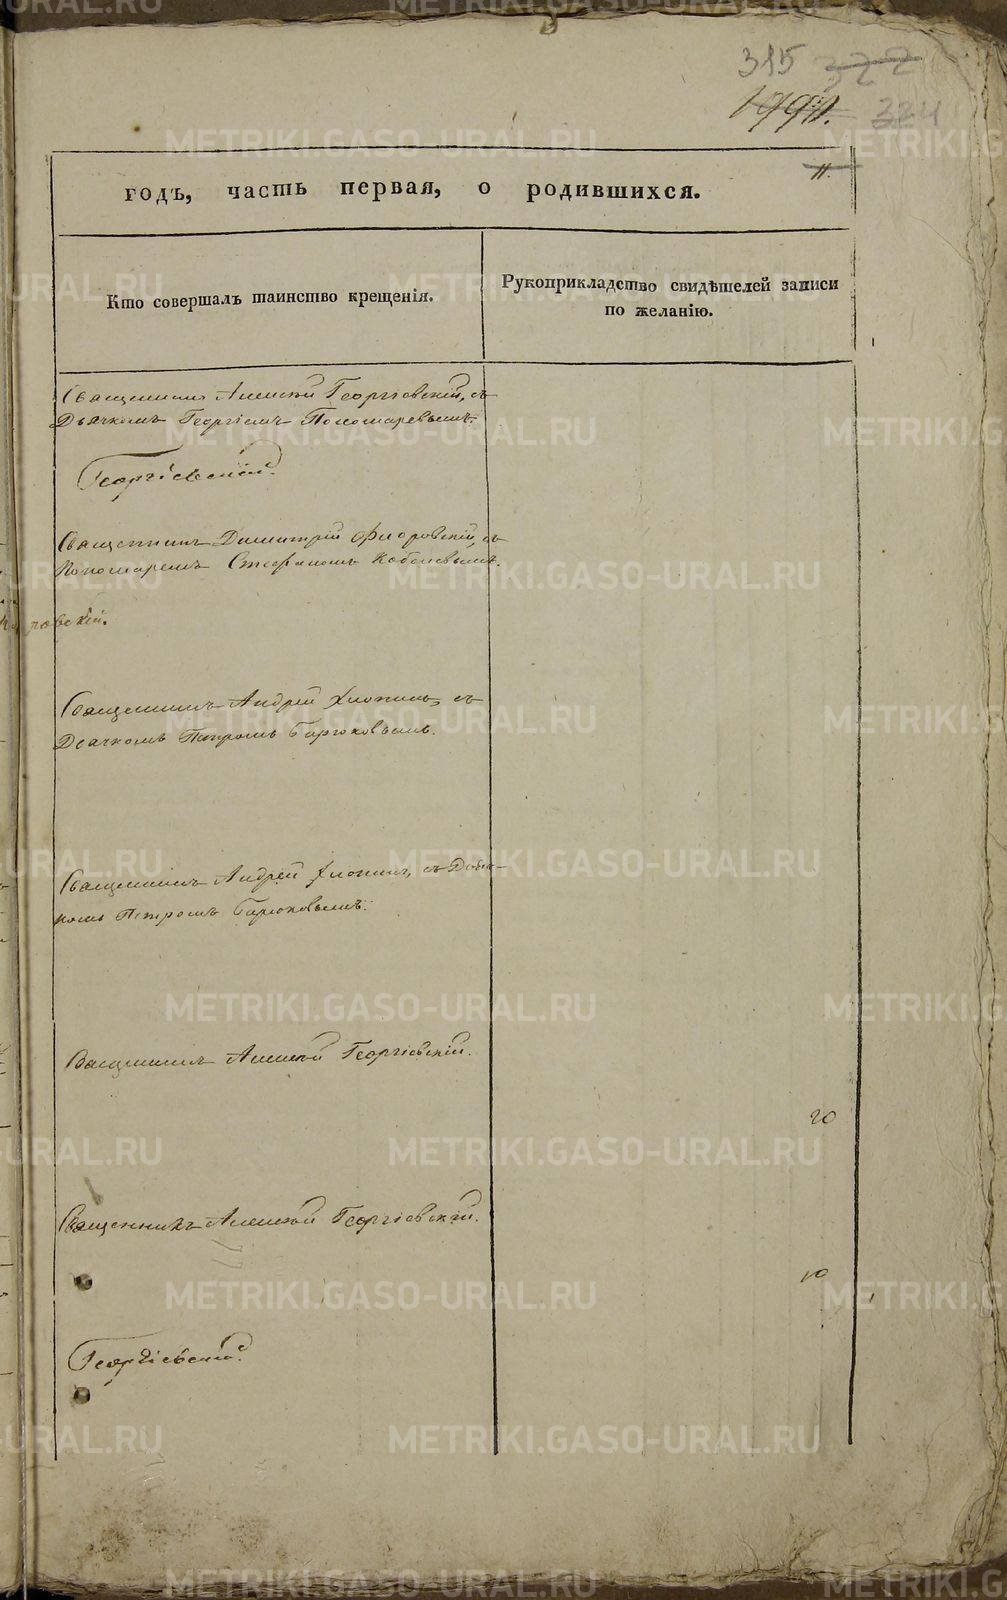 315 322
199. 324
11.
годъ, часть первая, о родившихся.
Кто совершалъ таинство крещенія.
Рукоприкладство свидѣтелей записи
по желанію.
Священникъ Алексѣй Георгіевскій, съ
Дьячкомъ Георгіемъ Пономаревымъ.
Георгіевскій.
Священникъ Димитрій Флоровскій, съ
Пономаремъ Стефаномъ
ровскій.
Священникъ Андрей Хлопинъ, съ
Дьячкомъ Петромъ Бирюковымъ.
Священникъ Андрей Хлопинъ, съ Дьяч-
комъ Петромъ Бирюковымъ.
Священникъ Алексѣй Георгіевскій.
20
Священникъ Алексѣй Георгіевскій.
10
Георгіевскій.
METRIKI.GASO-URAL.RU